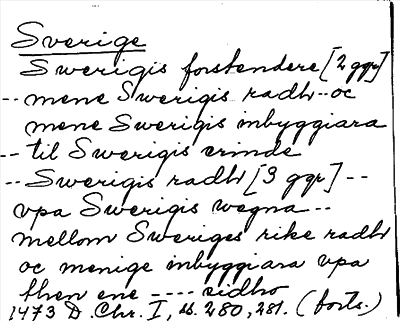 Sverige
Swerigis forstendere [2 ggr]
-- mene Swerigis radh -- oc
mene Swerigis inbyggiara
-- til Swerigis erinde
-- Swerigis radh [3 ggr] --
vpa Swerigis wegna --
mellom Sweriges rike radh
oc menige inbyggiara vpa
then ene ---- sidho
1473 D. Chr. I, s. 280, 281. (forts.)